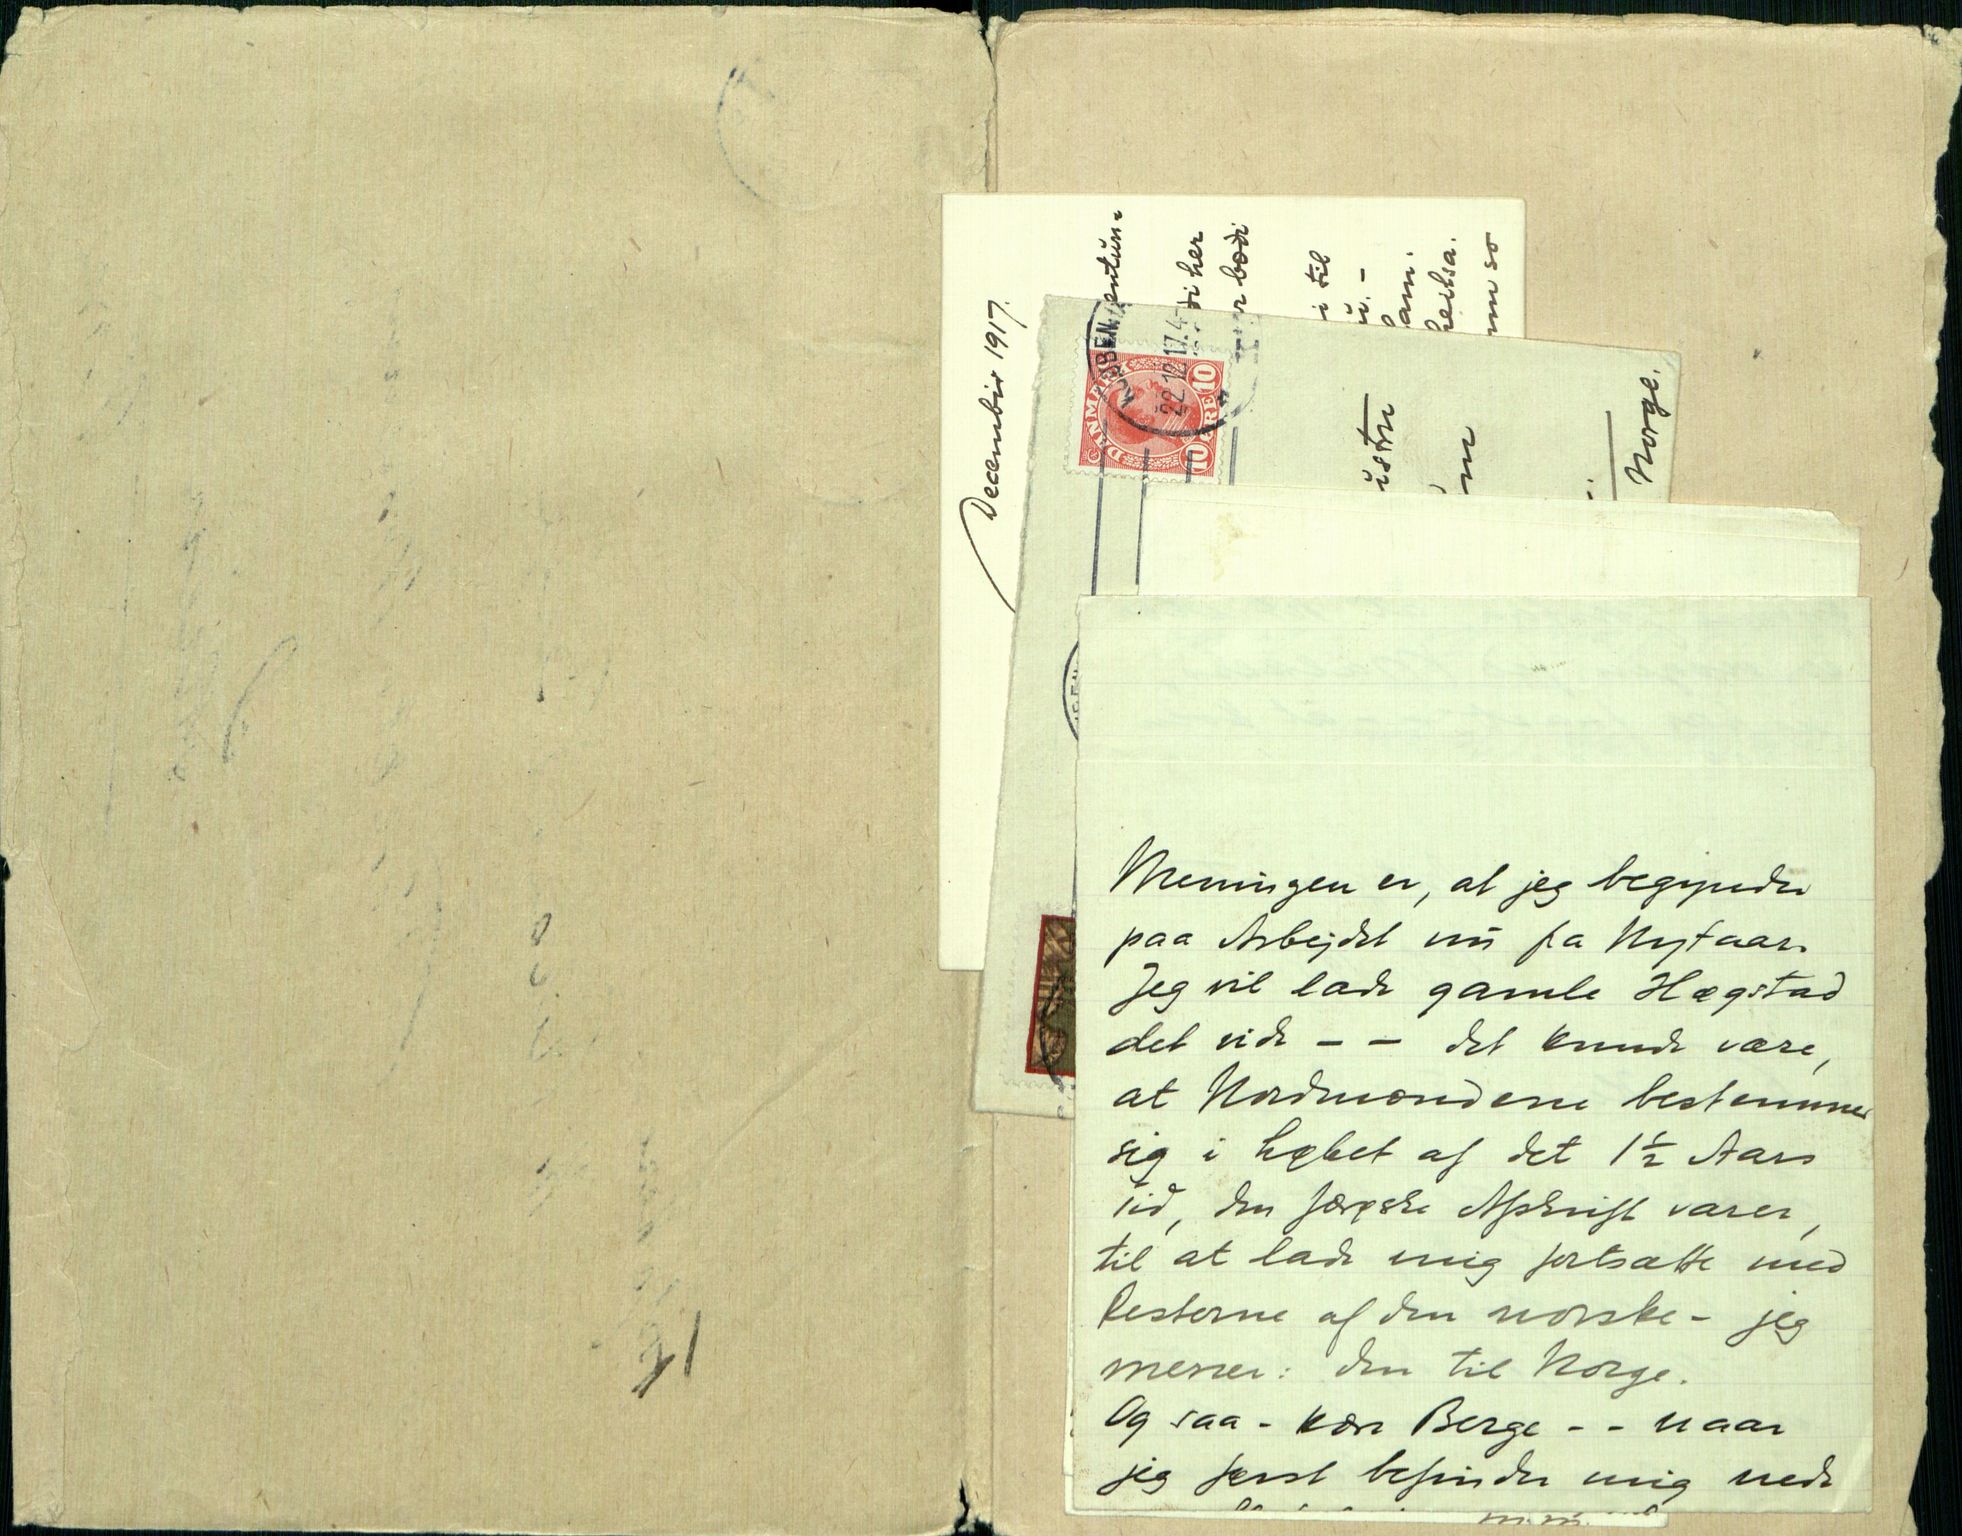 December 1917.
i her
bodi
i til
ú. -
heilsa.
um so
KØBENH
22.12.17.4
DANMARK
10 ØRE 10
istru
Norge.
Meningen er, at jeg begynder
paa Arbejdet nú fra Nytaar.
Jeg vil lade gamle Hægstad
det vide - - det kunde være,
at Nordmændene bestemmer
sig i Løbet af det 1½ Aars
Tid, den færøske Afskrift varer,
til at lade mig fortsætte med
Resterne af den norske - jeg
mener: den til Norge.
Og saa - kære Berge - - naar
jeg først befinder mig nede